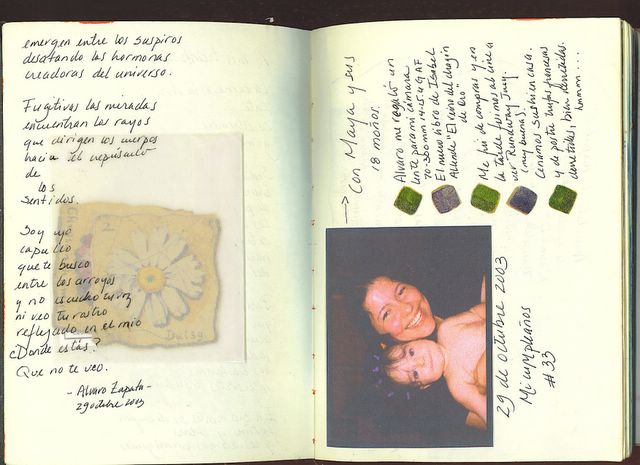 emergen entre los suspiros
desatando las hormonas
creadoras del universo.
Fugitivas las miradas
encuentran los rayos
que dirigen los cuerpos
hacia el crepúsculo
de
los
sentidos.
Soy yo
capullo
que te busco
entre los arroyos
y no escucho tu voz
ni veo tu rostro
reflejado en el mio
¿Donde estás?
Que no te veo.
- Alvaro Zapata -
29 octubre 2003
2
Daisy
→ Con Maya y sus
18 monos.
Alvaro me regaló un
lente para mi cámara
70-300 mm f4-5.6 G AF
El nuevo libro de Isabel
Allende "El reino del dragón
de oro"
Me fui de compras y en
la tarde fuimos al cine a
ver Runaway Jury.
(muy buena).
Cenamos sushi en casa.
y de postre trufas francesas
derretidas, bien derretidas.
hmmm...
29 de octubre 2003
Mi cumpleaños
# 33